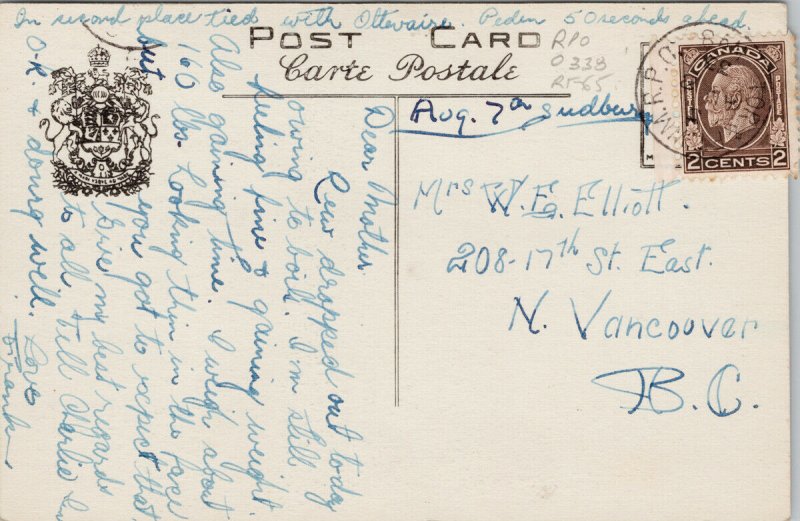 In second place tied with Ottevaire. Peden 50 seconds ahead.
POST CARD
Carte Postale
RPO
O 339
RF65
Aug. 7th Sudbury
CANADA
2 CENTS 2
Mrs W. E. Elliott.
208-17th St. East.
N. Vancouver
B.C.
Dear Mother
Lew dropped out today
owing to boil. I'm still
feeling fine & gaining weight.
Also gaining time. I weigh about
160 lbs. Looking thin in the face
but you got to expect that
Give my best regards
to all & tell Charlie I'm
O.K. & doing well. Love
Frank